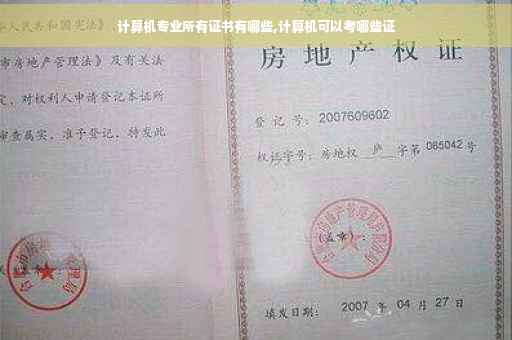 计算机专业所有证书有哪些,计算机可以考哪些证
人民共和国宪法》
市房地产管理法》及有关法
定，对权利人申请登记本证所
审查属实，准予登记，特发此
房地产权证
登记号：2007609602
权证字号：房地权 庐 字第 065042 号
(盖章)：
填发日期：2007 年 04 月 27 日